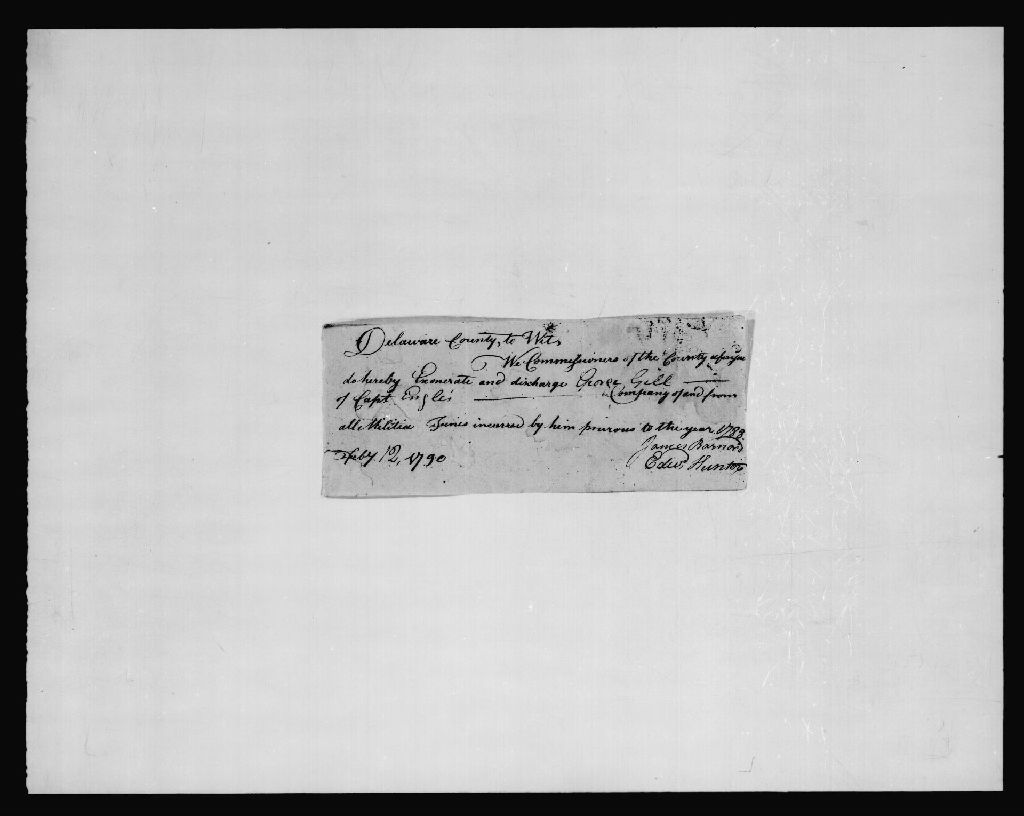 Delaware County, to Wit,
We Commissioners of the County aforsaid
do hereby Exonerate and discharge George Gill
of Capt Engles Company of and from
all Militia Fines incurred by him previous to the year 1783
James Barnard
Feby 12, 1790 Edwd Hunter